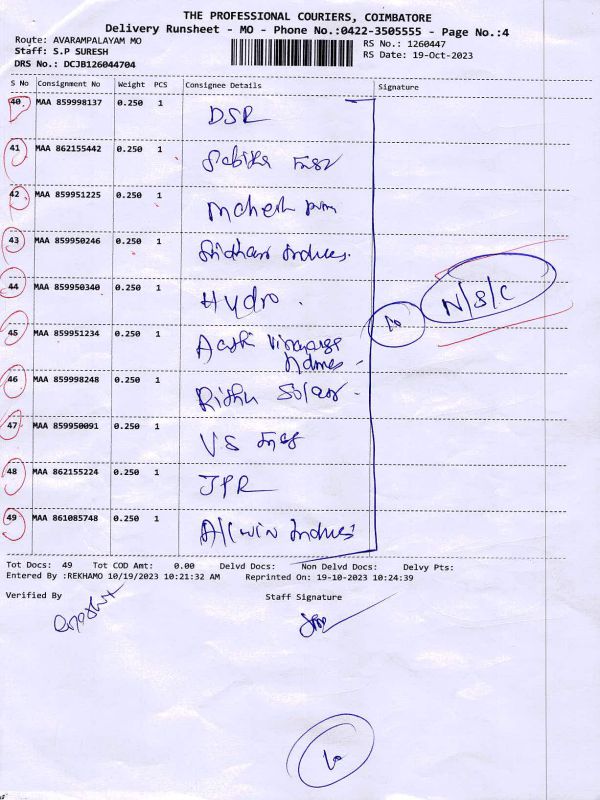 THE PROFESSIONAL COURIERS, COIMBATORE
Delivery Runsheet - MO - Phone No.:0422-3505555 - Page No.:4
Route: AVARAMPALAYAM MO
RS No.: 1260447
Staff: S.P SURESH
RS Date: 19-Oct-2023
DRS No.: DCJB126044704
S No Consignment No Weight PCS Consignee Details Signature
40 MAA 859998137 0.250 1 DSR
41 MAA 862155442 0.250 1
42 MAA 859951225 0.250 1 Mahesh
43 MAA 859950246 0.250 1 Sridhar
44 MAA 859950340 0.250 1 Hydro
N/S/C
45 MAA 859951234 0.250 1
46 MAA 859998248 0.250 1
47 MAA 859950091 0.250 1 VS
48 MAA 862155224 0.250 1 JPR
49 MAA 861085748 0.250 1 Allwin
Tot Docs: 49 Tot COD Amt: 0.00 Delvd Docs: Non Delvd Docs: Delvy Pts:
Entered By :REKHAMO 10/19/2023 10:21:32 AM Reprinted On: 19-10-2023 10:24:39
Verified By Staff Signature